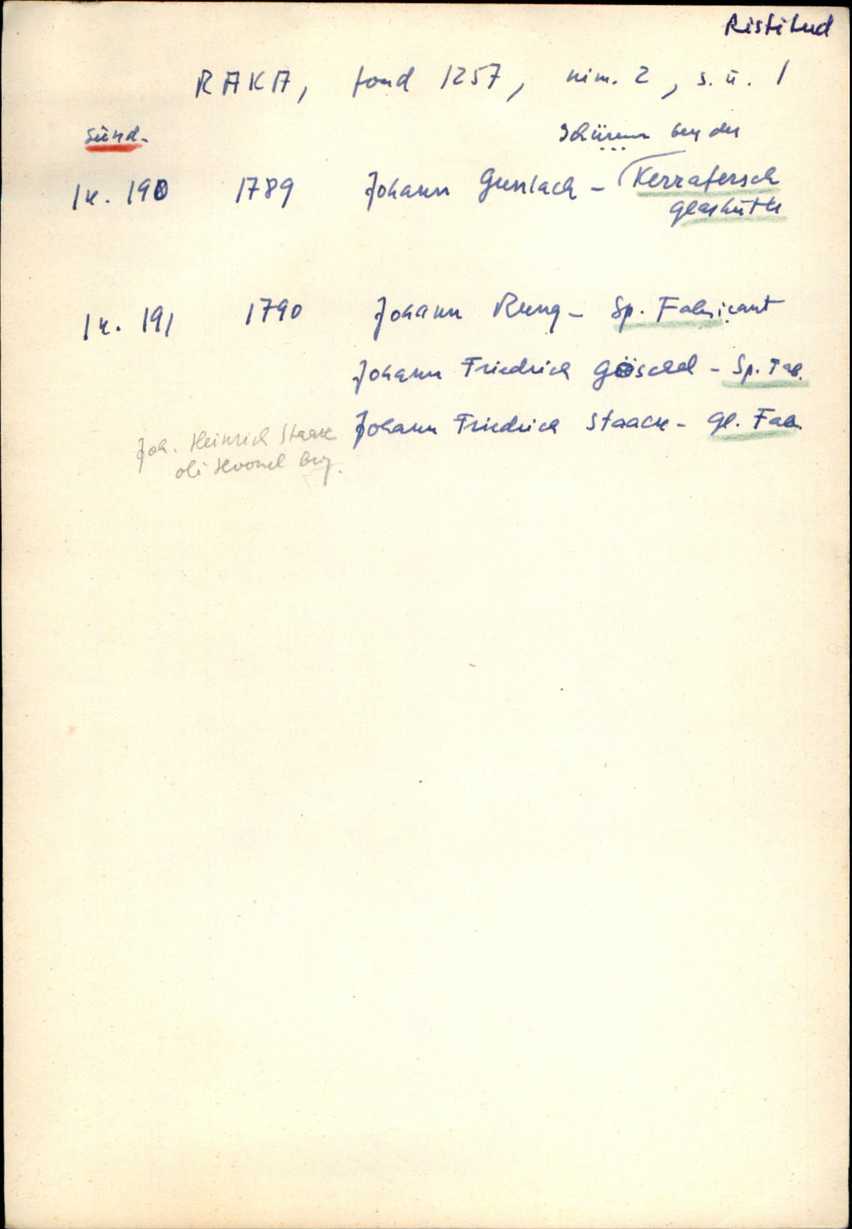 Ristitud
RAKA, fond 1257, nim. 2, s. ü. 1
Sünd.
Schürer bey der
lk. 190 1789 Johann Gunlach - Kerrafersch
Glashütte
lk. 191 1790 Johann Rung - Sp. Fabricant
Johann Friedrich Göschel - Sp. Fab.
Johann Friedrich Staack - Gl. Fab.
Joh. Heinrich Staack
oli